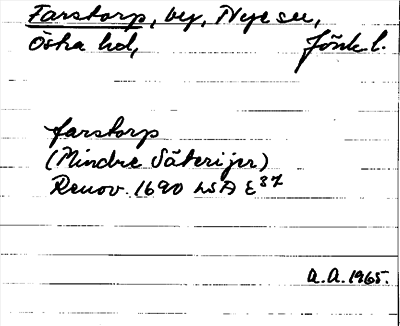 Farstorp, by, Nye sn,
Östra hd, Jönk l.
farstorp
(Mindre Säterijer)
Renov. 1690 LSA E 37
A.A. 1965.